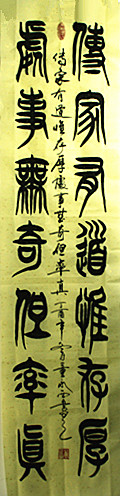 傳家有道惟存厚
處事無奇但率真
傳家有道惟存厚處事無奇但率真